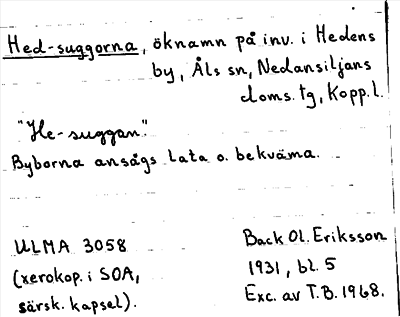 Hed-suggorna, öknamn på inv. i Hedens
by, Åls sn, Nedansiljans
doms. tg, Kopp. l.
"He-suggan".
Byborna ansågs lata o. bekväma.
ULMA 3058
(xerokop. i SOA,
särsk. kapsel).
Back Ol. Eriksson
1931, bl. 5
Exc. av T.B. 1968.